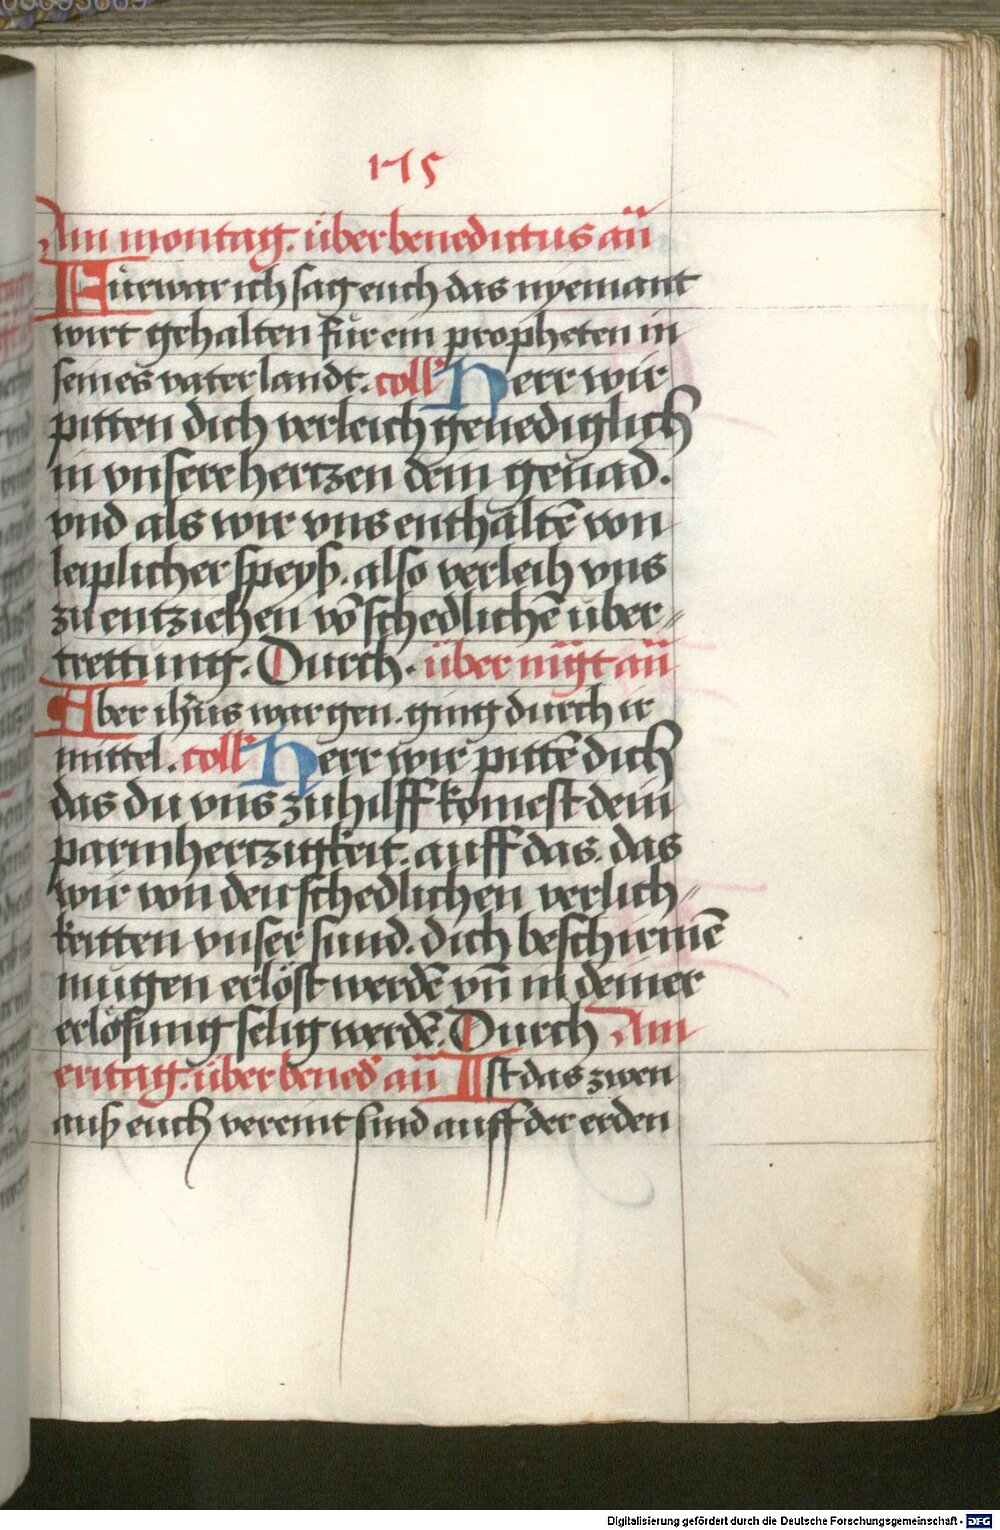 175
Am montag. über benedictus añ
Fürwar ich sag euch das nyemant
wirt gehalten für ein propheten in
seines vaterlandt. coll' Herr wir
pitten dich verleich genediglich
in vnsere hertzen dein genad.
vnd als wir vns enthaltē von
leiplicher speyß. also verleih vns
zu entziehen vō schedlichē über-
trettung. Durch. über mgt añ
Aber ih̄us wargen. ging durch ir
mittel. coll' Herr wir pittē dich
das du vns zu hilff komest dein
parmhertzigkeit. auff das. das
wir von den schedlichen verlich-
keitten vnser sund. dich beschirmē
mugen erlöst werdē vñ in deiner
erlösung selig werdē. Durch Am
eritag. über bened' añ Ist das zwen
auß euch vereint sind auff der erden
Digitalisierung gefördert durch die Deutsche Forschungsgemeinschaft - DFG